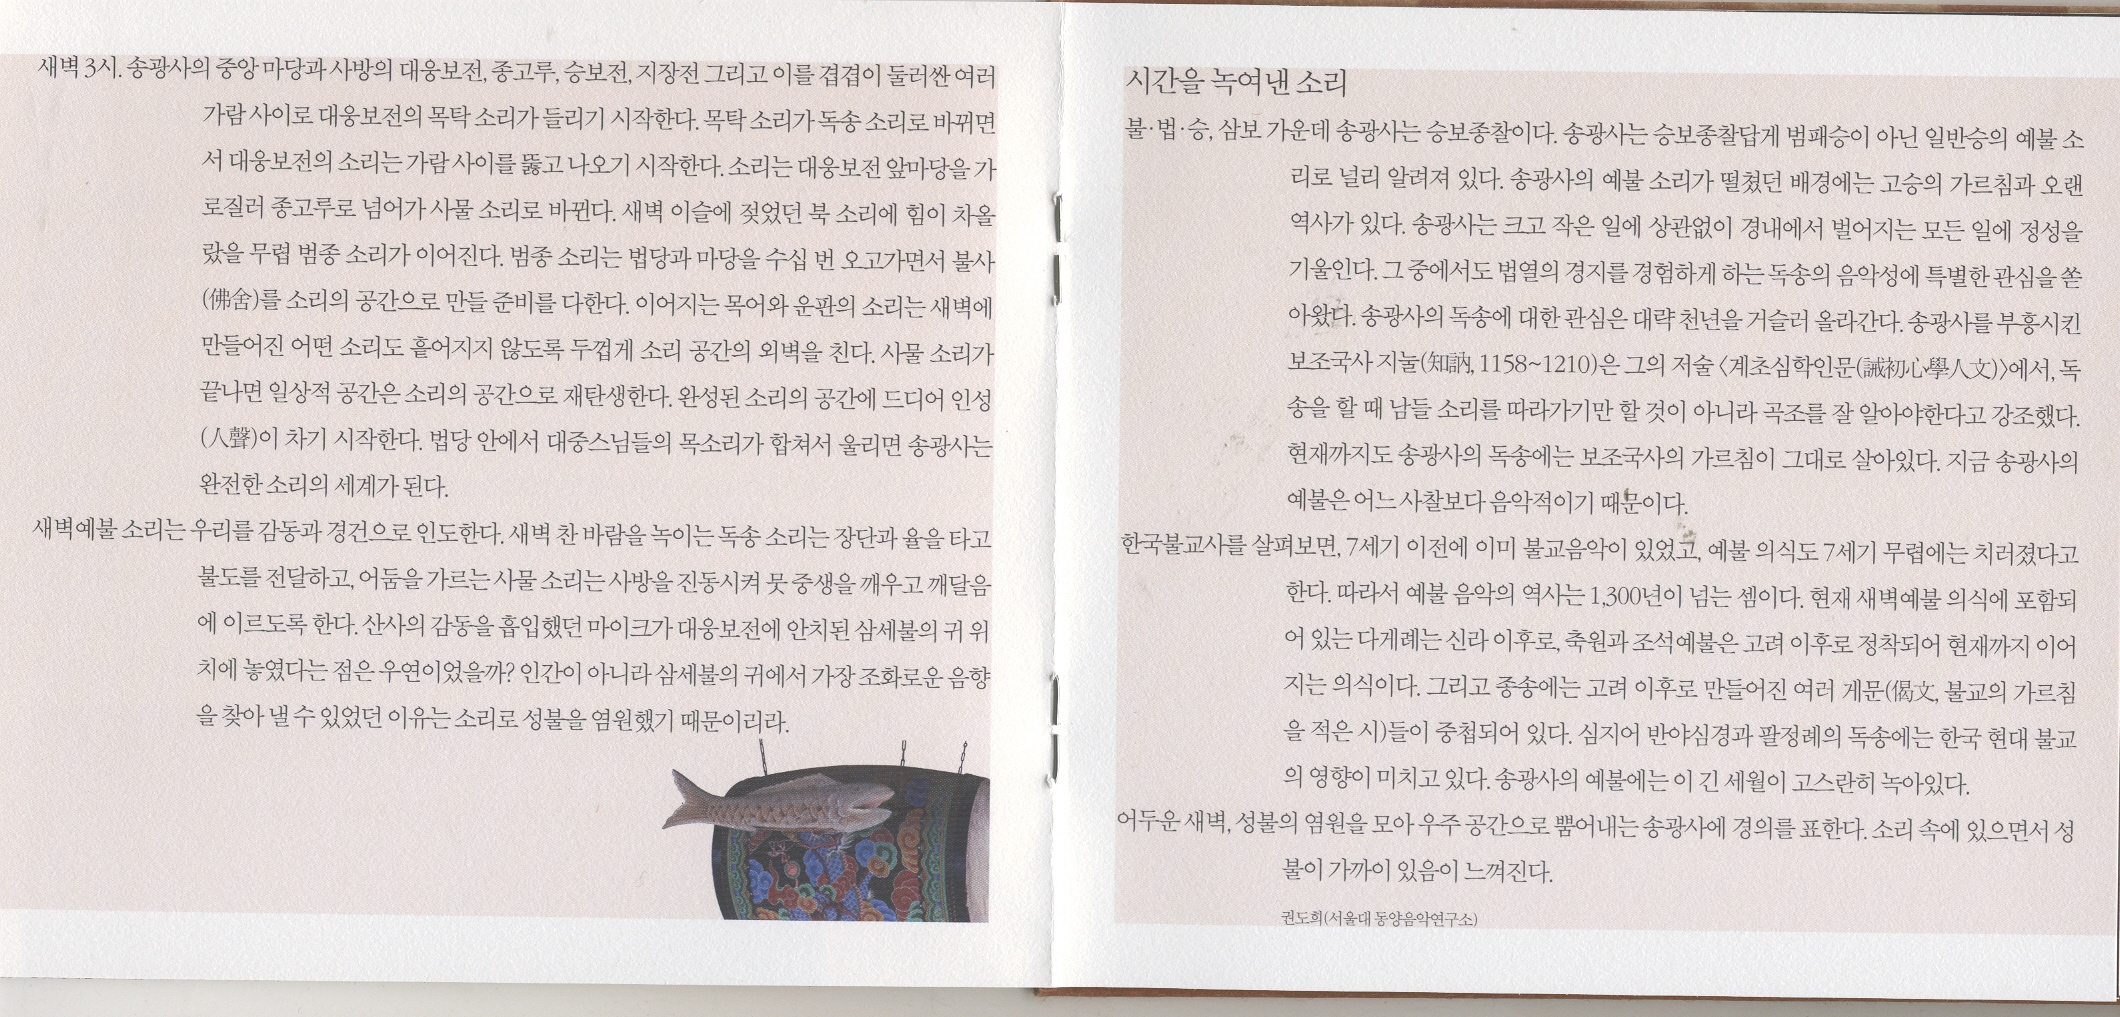 새벽 3시. 송광사의 중앙 마당과 사방의 대웅보전, 종고루, 승보전, 지장전 그리고 이를 겹겹이 둘러싼 여러
가람 사이로 대웅보전의 목탁 소리가 들리기 시작한다. 목탁 소리가 독송 소리로 바뀌면
서 대웅보전의 소리는 가람 사이를 뚫고 나오기 시작한다. 소리는 대웅보전 앞마당을 가
로질러 종고루로 넘어가 사물 소리로 바뀐다. 새벽 이슬에 젖었던 북 소리에 힘이 차올
랐을 무렵 범종 소리가 이어진다. 범종 소리는 법당과 마당을 수십 번 오고가면서 불사
(佛舍)를 소리의 공간으로 만들 준비를 다한다. 이어지는 목어와 운판의 소리는 새벽에
만들어진 어떤 소리도 흩어지지 않도록 두껍게 소리 공간의 외벽을 친다. 사물 소리가
끝나면 일상적 공간은 소리의 공간으로 재탄생한다. 완성된 소리의 공간에 드디어 인성
(人聲)이 차기 시작한다. 법당 안에서 대중스님들의 목소리가 합쳐서 울리면 송광사는
완전한 소리의 세계가 된다.
새벽예불 소리는 우리를 감동과 경건으로 인도한다. 새벽 찬 바람을 녹이는 독송 소리는 장단과 율을 타고
불도를 전달하고, 어둠을 가르는 사물 소리는 사방을 진동시켜 뭇 중생을 깨우고 깨달음
에 이르도록 한다. 산사의 감동을 흡입했던 마이크가 대웅보전에 안치된 삼세불의 귀 위
치에 놓였다는 점은 우연이었을까? 인간이 아니라 삼세불의 귀에서 가장 조화로운 음향
을 찾아 낼 수 있었던 이유는 소리로 성불을 염원했기 때문이리라.
시간을 녹여낸 소리
불·법·승, 삼보 가운데 송광사는 승보종찰이다. 송광사는 승보종찰답게 범패승이 아닌 일반승의 예불 소
리로 널리 알려져 있다. 송광사의 예불 소리가 떨쳤던 배경에는 고승의 가르침과 오랜
역사가 있다. 송광사는 크고 작은 일에 상관없이 경내에서 벌어지는 모든 일에 정성을
기울인다. 그 중에서도 법열의 경지를 경험하게 하는 독송의 음악성에 특별한 관심을 쏟
아왔다. 송광사의 독송에 대한 관심은 대략 천년을 거슬러 올라간다. 송광사를 부흥시킨
보조국사 지눌(知訥, 1158~1210)은 그의 저술 〈계초심학인문(誡初心學人文)〉에서, 독
송을 할 때 남들 소리를 따라가기만 할 것이 아니라 곡조를 잘 알아야한다고 강조했다.
현재까지도 송광사의 독송에는 보조국사의 가르침이 그대로 살아있다. 지금 송광사의
예불은 어느 사찰보다 음악적이기 때문이다.
한국불교사를 살펴보면, 7세기 이전에 이미 불교음악이 있었고, 예불 의식도 7세기 무렵에는 치러졌다고
한다. 따라서 예불 음악의 역사는 1,300년이 넘는 셈이다. 현재 새벽예불 의식에 포함되
어 있는 다게례는 신라 이후로, 축원과 조석예불은 고려 이후로 정착되어 현재까지 이어
지는 의식이다. 그리고 종송에는 고려 이후로 만들어진 여러 게문(偈文, 불교의 가르침
을 적은 시)들이 중첩되어 있다. 심지어 반야심경과 팔정례의 독송에는 한국 현대 불교
의 영향이 미치고 있다. 송광사의 예불에는 이 긴 세월이 고스란히 녹아있다.
어두운 새벽, 성불의 염원을 모아 우주 공간으로 뿜어내는 송광사에 경의를 표한다. 소리 속에 있으면서 성
불이 가까이 있음이 느껴진다.
권도희(서울대 동양음악연구소)